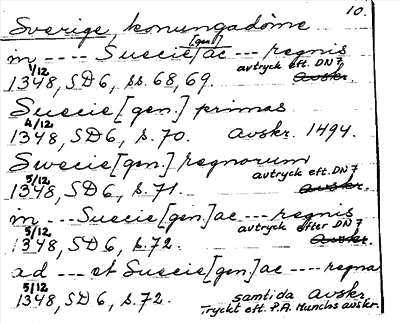 10.
Sverige, konungadöme
[gen]
m ---- Suecie ac --- regnis
1/12 avtryck eft. DN 7
1348, SD 6, ss. 68, 69. Avskr.
Suecie [gen.] primas
4/12
1348, SD 6, s. 70. Avskr. 1494.
Swecie [gen.] regnorum
5/12 avtryck eft. DN 7
1348, SD 6, s. 71. Avskr.
m ---- Suecie [gen] ac --- regnis
5/12 avtryck efter DN 7
1348, SD 6, s. 72. Avskr.
ad --- et Suecie [gen] ac ---- regna
5/12 samtida Avskr.
1348, SD 6, s. 72. Tryckt eft. P.A. Munchs avskr.